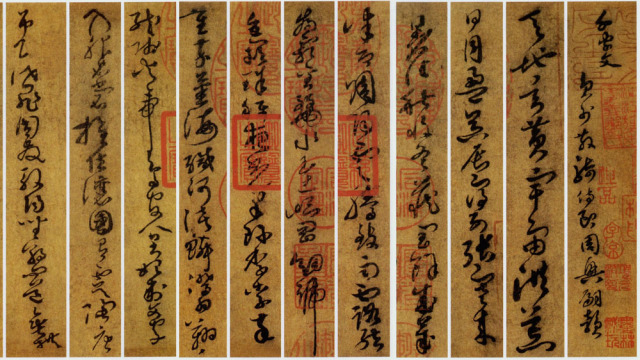 千字文 員外散騎侍郎周興嗣韻
天地玄黃宇宙洪荒
日月盈昃辰宿列張寒來
暑往秋收冬藏閏餘成歲
律呂調陽雲騰致雨露結
為霜金生麗水玉出崑岡劍號
巨闕珠稱夜光果珍李柰菜
重芥薑海鹹河淡鱗潛羽翔
龍師火帝鳥官人皇始制文字
乃服衣裳推位讓國有虞陶唐
弔民伐罪周發殷湯坐朝問道垂拱